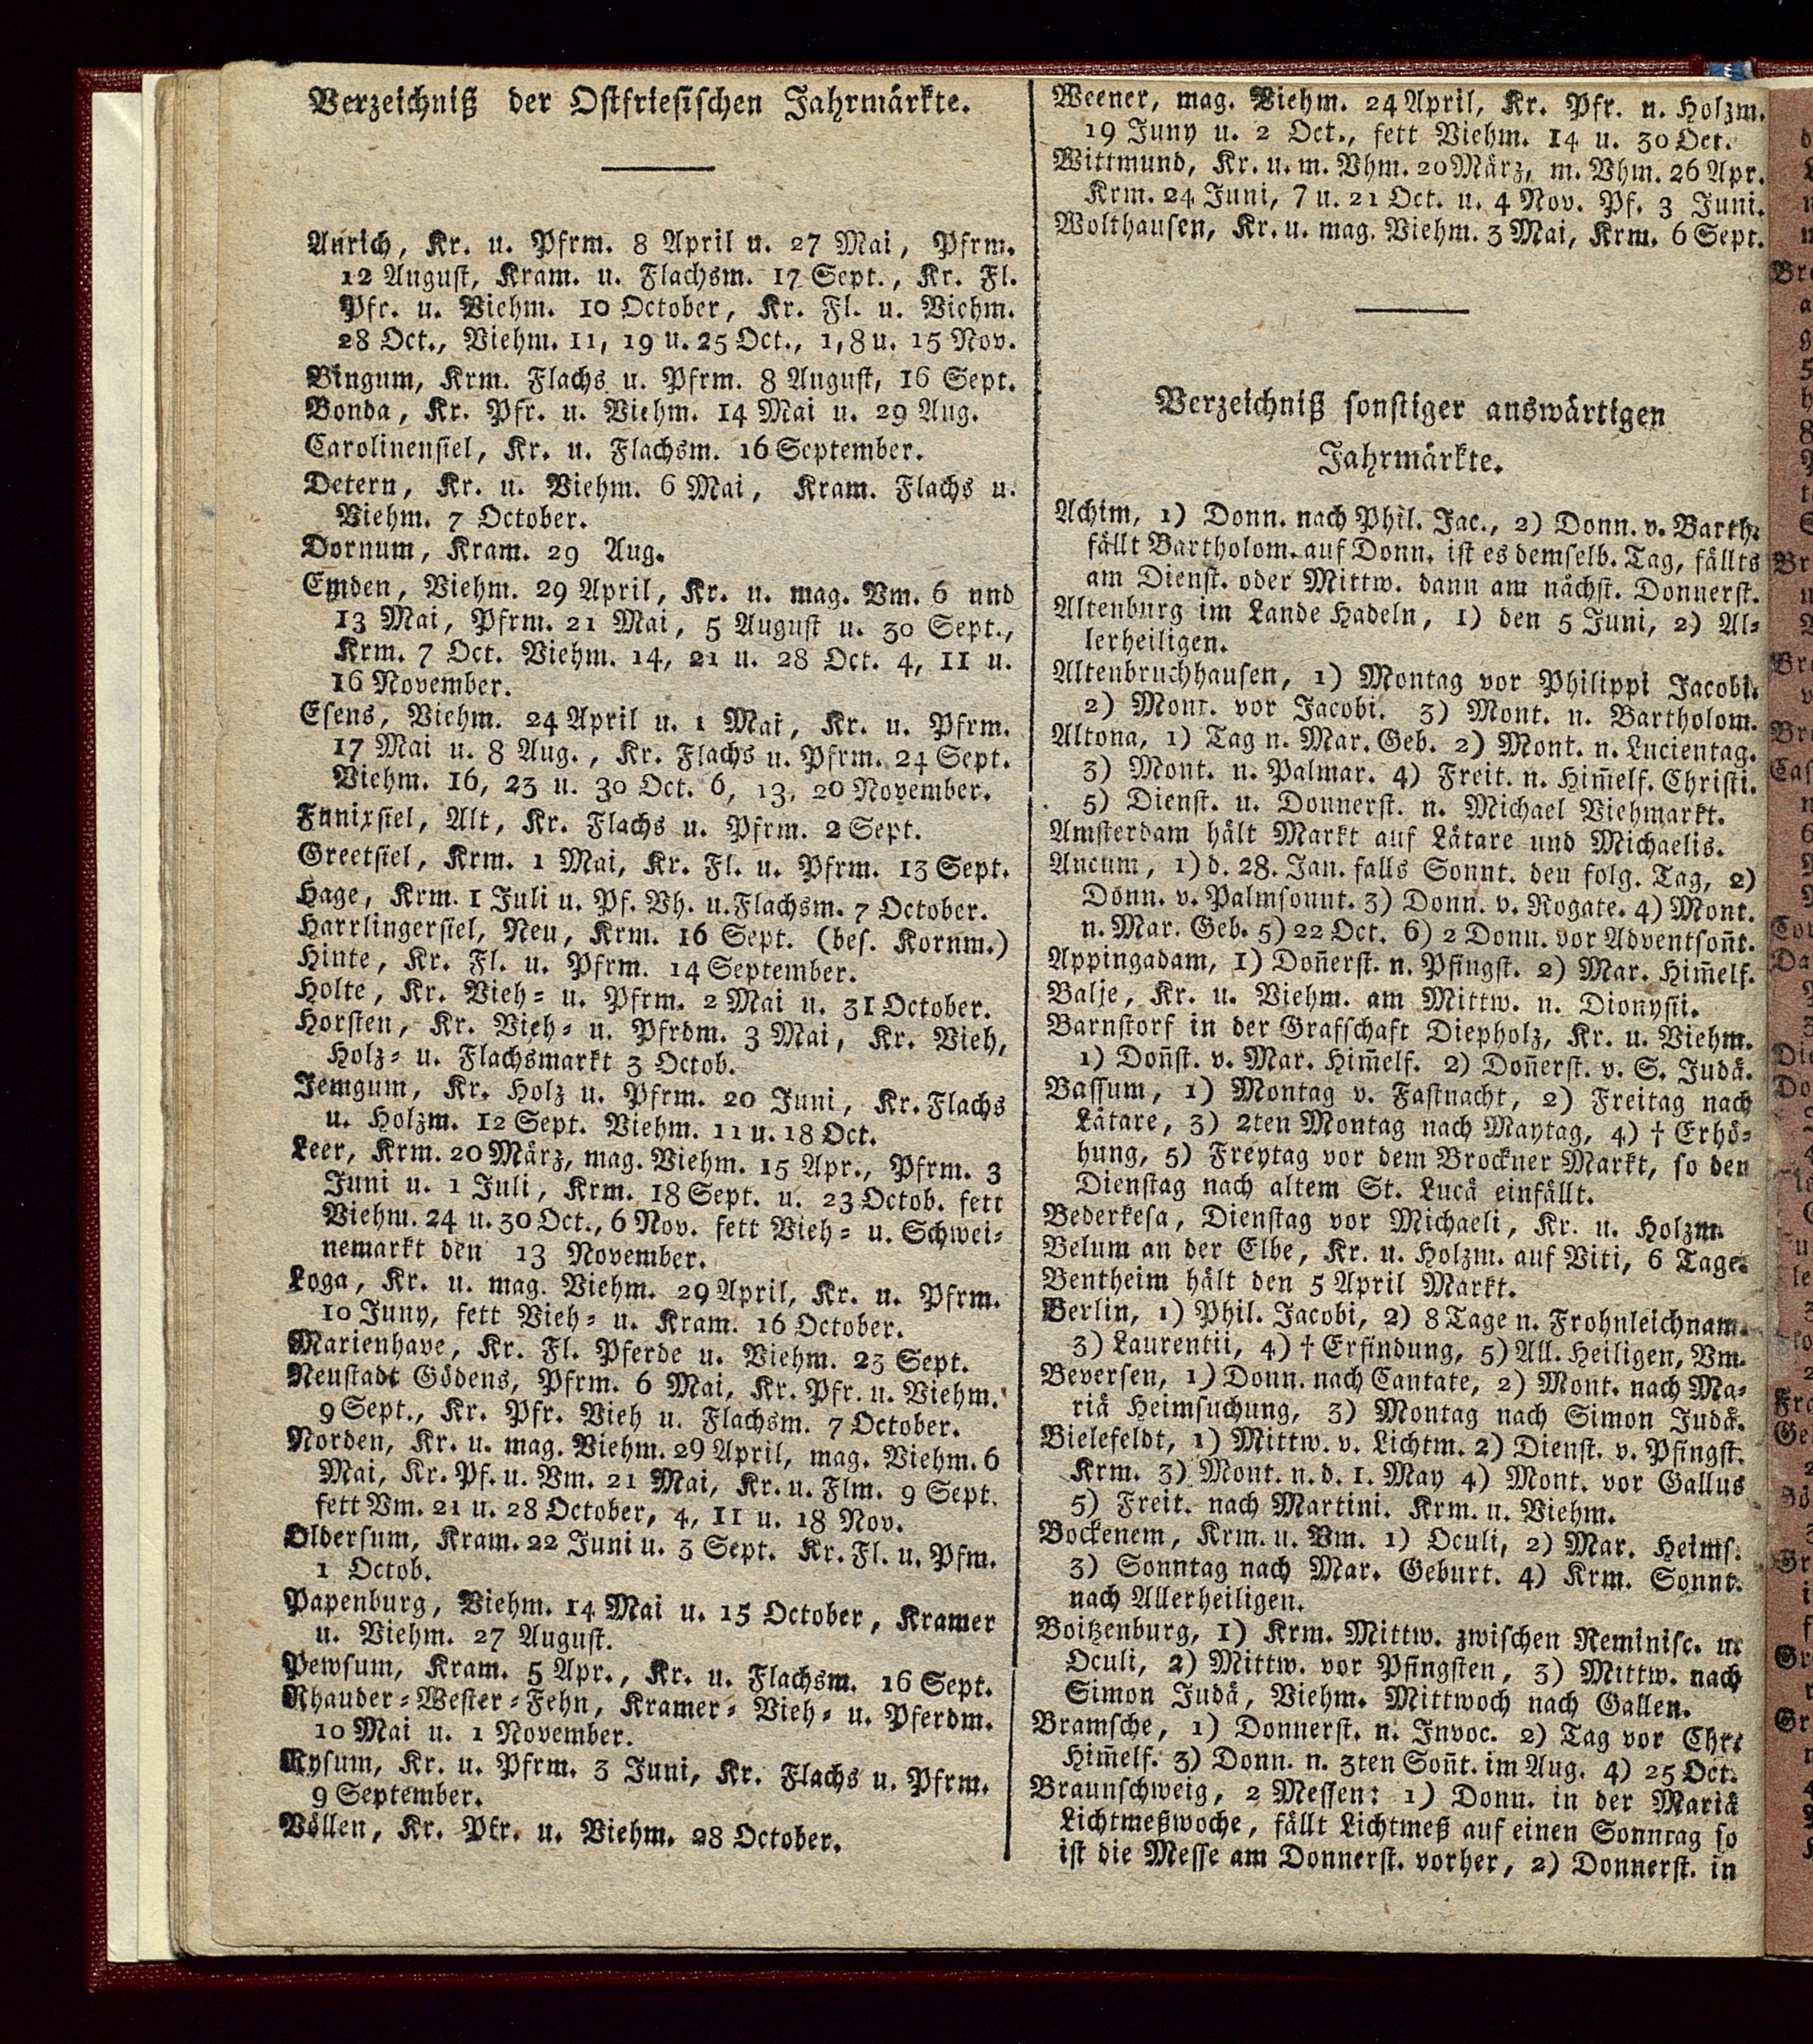 Verzeichniß der Ostfriesischen Jahrmärkte.
Aurich, Kr. u. Pfrm. 8 April u. 27 Mai, Pfrm.
12 August, Kram. u. Flachsm. 17 Sept., Kr. Fl.
Pfr. u. Viehm. 10 October, Kr. Fl. u. Viehm.
28 Oct., Viehm. 11, 19 u. 25 Oct., 1, 8 u. 15 Nov.
Bingum, Krm. Flachs u. Pfrm. 8 August, 16 Sept.
Bonda, Kr. Pfr. u. Viehm. 14 Mai u. 29 Aug.
Carolinensiel, Kr. u. Flachsm. 16 September.
Detern, Kr. u. Viehm. 6 Mai, Kram. Flachs u.
Viehm. 7 October.
Dornum, Kram. 29 Aug.
Emden, Viehm. 29 April, Kr. u. mag. Vm. 6 und
13 Mai, Pfrm. 21 Mai, 5 August u. 30 Sept.,
Krm. 7 Oct. Viehm. 14, 21 u. 28 Oct. 4, 11 u.
16 November.
Esens, Viehm. 24 April u. 1 Mai, Kr. u. Pfrm.
17 Mai u. 8 Aug., Kr. Flachs u. Pfrm. 24 Sept.
Viehm. 16, 23 u. 30 Oct. 6, 13, 20 November.
Funixsiel, Alt, Kr. Flachs u. Pfrm. 2 Sept.
Greetsiel, Krm. 1 Mai, Kr. Fl. u. Pfrm. 13 Sept.
Hage, Krm. 1 Juli u. Pf. Vh. u. Flachsm. 7 October.
Harrlingersiel, Neu, Krm. 16 Sept. (bes. Kornm.)
Hinte, Kr. Fl. u. Pfrm. 14 September.
Holte, Kr. Vieh- u. Pfrm. 2 Mai u. 31 October.
Horsten, Kr. Vieh- u. Pfrdm. 3 Mai, Kr. Vieh,
Holz- u. Flachsmarkt 3 Octob.
Jemgum, Kr. Holz u. Pfrm. 20 Juni, Kr. Flachs
u. Holzm. 12 Sept. Viehm. 11 u. 18 Oct.
Leer, Krm. 20 März, mag. Viehm. 15 Apr., Pfrm. 3
Juni u. 1 Juli, Krm. 18 Sept. u. 23 Octob. fett
Viehm. 24 u. 30 Oct., 6 Nov. fett Vieh- u. Schwei-
nemarkt den 13 November.
Loga, Kr. u. mag. Viehm. 29 April, Kr. u. Pfrm.
10 Juny, fett Vieh- u. Kram. 16 October.
Marienhave, Kr. Fl. Pferde u. Viehm. 23 Sept.
Neustadt Gödens, Pfrm. 6 Mai, Kr. Pfr. u. Viehm.
9 Sept., Kr. Pfr. Vieh u. Flachsm. 7 October.
Norden, Kr. u. mag. Viehm. 29 April, mag. Viehm. 6
Mai, Kr. Pf. u. Vm. 21 Mai, Kr. u. Flm. 9 Sept.
fett Vm. 21 u. 28 October, 4, 11 u. 18 Nov.
Oldersum, Kram. 22 Juni u. 3 Sept. Kr. Fl. u. Pfm.
1 Octob.
Papenburg, Viehm. 14 Mai u. 15 October, Kramer
u. Viehm. 27 August.
Pewsum, Kram. 5 Apr., Kr. u. Flachsm. 16 Sept.
Rhauder-Wester-Fehn, Kramer- Vieh- u. Pferdm.
10 Mai u. 1 November.
Rysum, Kr. u. Pfrm. 3 Juni, Kr. Flachs u. Pfrm.
9 September.
Völlen, Kr. Pfr. u. Viehm. 28 October.
Weener, mag. Viehm. 24 April, Kr. Pfr. u. Holzm.
19 Juny u. 2 Oct., fett Viehm. 14 u. 30 Oct.
Wittmund, Kr. u. m. Vhm. 20 März, m. Vhm. 26 Apr.
Krm. 24 Juni, 7 u. 21 Oct. u. 4 Nov. Pf. 3 Juni.
Wolthausen, Kr. u. mag. Viehm. 3 Mai, Krm. 6 Sept.
Verzeichniß sonstiger auswärtigen
Jahrmärkte.
Achim, 1) Donn. nach Phil. Jac., 2) Donn. v. Barth.
fällt Bartholom. auf Donn. ist es demselb. Tag, fällts
am Dienst. oder Mittw. dann am nächst. Donnerst.
Altenburg im Lande Hadeln, 1) den 5 Juni, 2) Al-
lerheiligen.
Altenbruchhausen, 1) Montag vor Philippi Jacobi.
2) Mont. vor Jacobi. 3) Mont. n. Bartholom.
Altona, 1) Tag n. Mar. Geb. 2) Mont. n. Lucientag.
3) Mont. n. Palmar. 4) Freit. n. Him̄elf. Christi.
5) Dienst. u. Donnerst. n. Michael Viehmarkt.
Amsterdam hält Markt auf Lätare und Michaelis.
Ancum, 1) d. 28. Jan. falls Sonnt. den folg. Tag, 2)
Donn. v. Palmsonnt. 3) Donn. v. Rogate. 4) Mont.
n. Mar. Geb. 5) 22 Oct. 6) 2 Donn. vor Adventson̄t.
Appingadam, 1) Don̄erst. n. Pfingst. 2) Mar. Him̄elf.
Balje, Kr. u. Viehm. am Mittw. n. Dionysii.
Barnstorf in der Grafschaft Diepholz, Kr. u. Viehm.
1) Don̄st. v. Mar. Him̄elf. 2) Don̄erst. v. S. Judä.
Bassum, 1) Montag v. Fastnacht, 2) Freitag nach
Lätare, 3) 2ten Montag nach Maytag, 4) † Erhö-
hung, 5) Freytag vor dem Brockner Markt, so den
Dienstag nach altem St. Lucä einfällt.
Bederkesa, Dienstag vor Michaeli, Kr. u. Holzm.
Belum an der Elbe, Kr. u. Holzm. auf Viti, 6 Tage.
Bentheim hält den 5 April Markt.
Berlin, 1) Phil. Jacobi, 2) 8 Tage n. Frohnleichnam.
3) Laurentii, 4) † Erfindung, 5) All. Heiligen, Vm.
Beversen, 1) Donn. nach Cantate, 2) Mont. nach Ma-
riä Heimsuchung, 3) Montag nach Simon Judä.
Bielefeldt, 1) Mittw. v. Lichtm. 2) Dienst. v. Pfingst.
Krm. 3) Mont. n. d. 1. May 4) Mont. vor Gallus
5) Freit. nach Martini. Krm. u. Viehm.
Bockenem, Krm. u. Vm. 1) Oculi, 2) Mar. Heims.
3) Sonntag nach Mar. Geburt. 4) Krm. Sonnt.
nach Allerheiligen.
Boitzenburg, 1) Krm. Mittw. zwischen Reminisc. u.
Oculi, 2) Mittw. vor Pfingsten, 3) Mittw. nach
Simon Judä, Viehm. Mittwoch nach Gallen.
Bramsche, 1) Donnerst. n. Invoc. 2) Tag vor Chr.
Him̄elf. 3) Donn. n. 3ten Son̄t. im Aug. 4) 25 Oct.
Braunschweig, 2 Messen: 1) Donn. in der Mariä
Lichtmeßwoche, fällt Lichtmeß auf einen Sonntag so
ist die Messe am Donnerst. vorher, 2) Donnerst. in